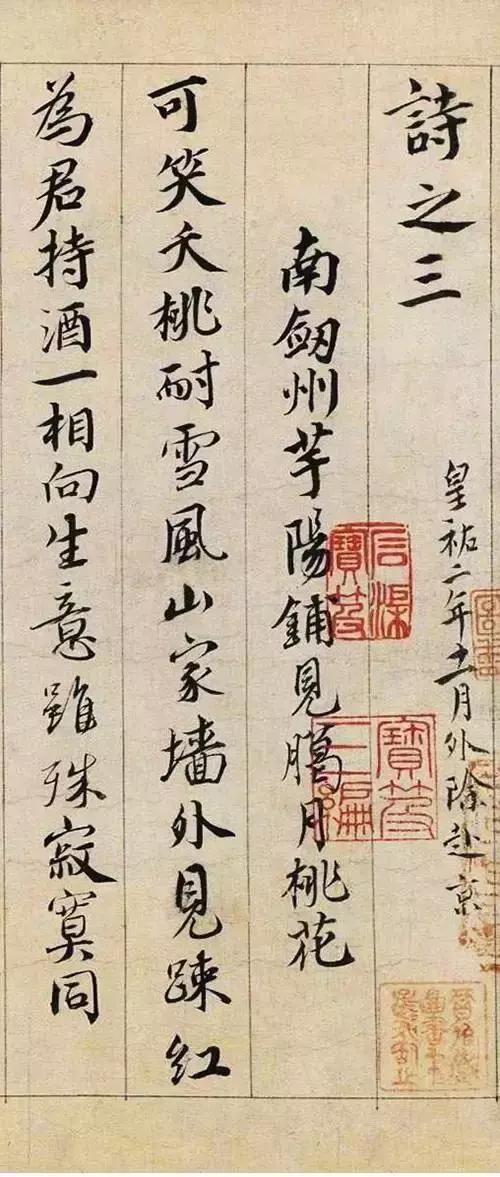 詩之三
皇祐二年十一月外除赴京
南劔州芋陽鋪見臘月桃花
可笑夭桃耐雪風山家墻外見踈紅
為君持酒一相向生意雖殊寂寞同
石渠寶笈
寶笈三編